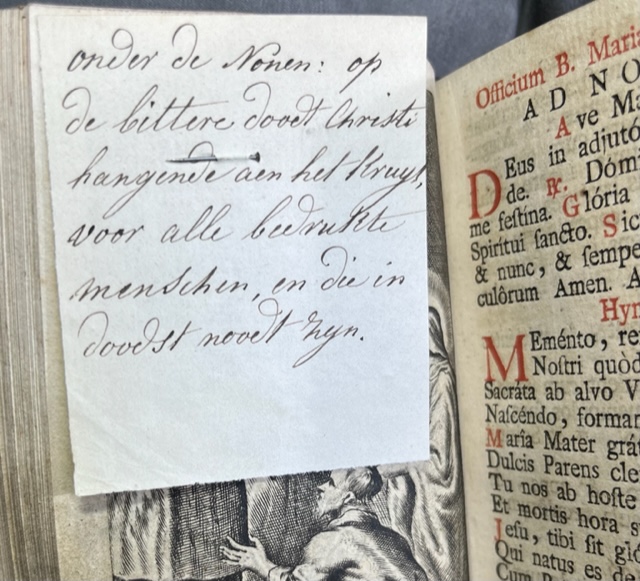 onder de Nonen: op
de bittere doodt Christi
hangende aen het Kruys,
voor alle bedrukte
menschen, en die in
doodst noodt zyn.
Officium B. Maria
AD NO
Ave Ma
DEus in adjutó
de. ℟. Dómi
me festina. Glória
Spirítui sancto. Sic
& nunc, & sempe
culôrum Amen. A
Hyn
MEménto, re
Nostri quòd
Sacráta ab alvo V
Nascéndo, forman
Maria Mater grát
Dulcis Parens cle
Tu nos ab hoste
Et mortis hora s
Jesu, tibi sit gló
Qui natus es de
Cum